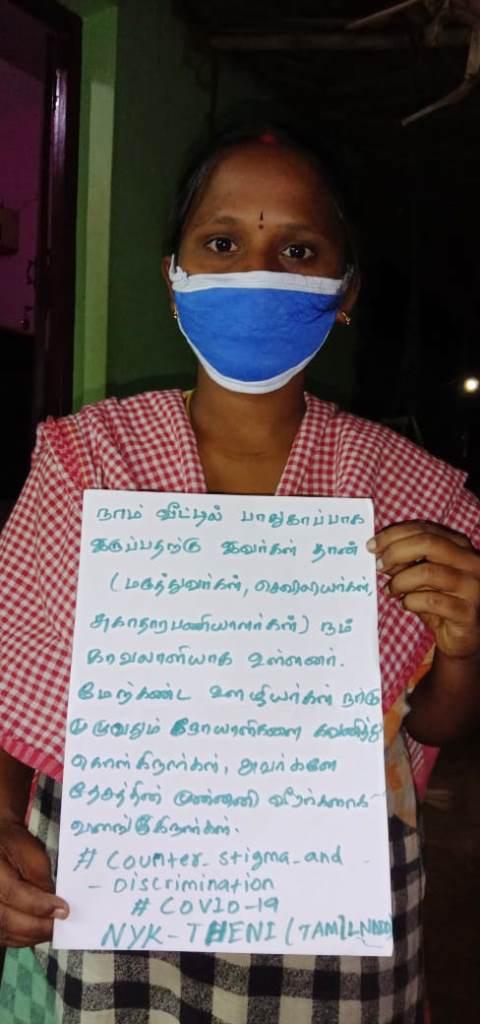 நாம் வீட்டில் பாதுகாப்பாக
இருப்பதற்கு இவர்கள் தான்
(மருத்துவர்கள், செவிலியர்கள்,
சுகாதாரபணியாளர்கள்) நம்
காவலாளியாக உள்ளனர்.
மேற்கண்ட ஊழியர்கள் நாடு
முழுவதும் நோயாளிகளை கவனித்து
கொள்கிறார்கள், அவர்களே
தேசத்தின் முன்னணி வீரர்களாக
# Counter-stigma-and
- Discrimination
# COVID-19
NYK-THENI (TAMILNADU)